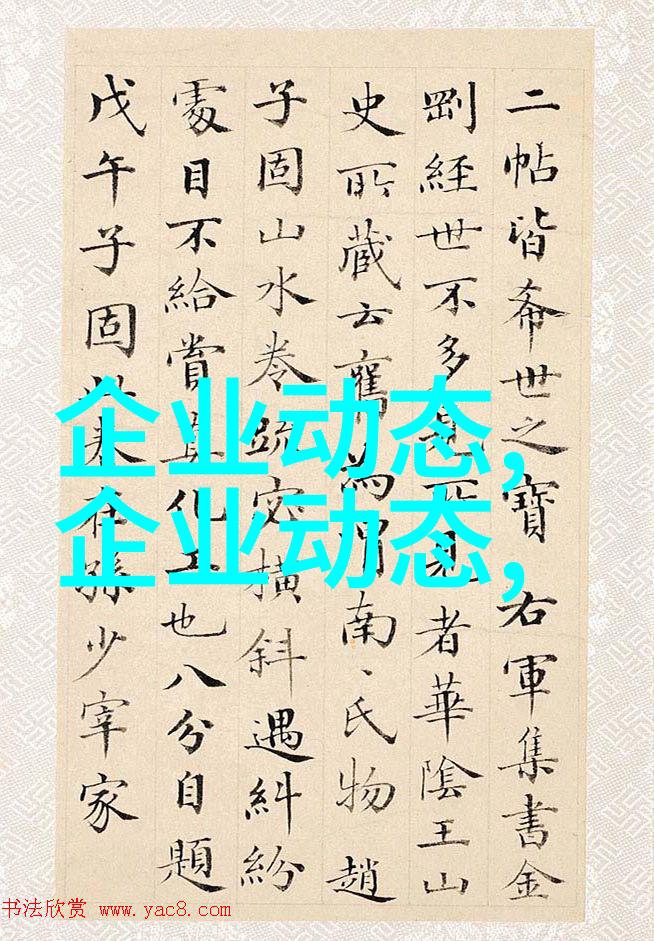 二帖皆希世之寶右軍集書金
剛經世不多見所見者華陰王山
史所藏云舊為南、氏物趙
子固山水卷疏密橫斜遇糾紛
處目不給賞真化工也八分自題
戊午子固在孫少宰家
企业动态,
企业动态,
书法欣赏 www.yac8.com